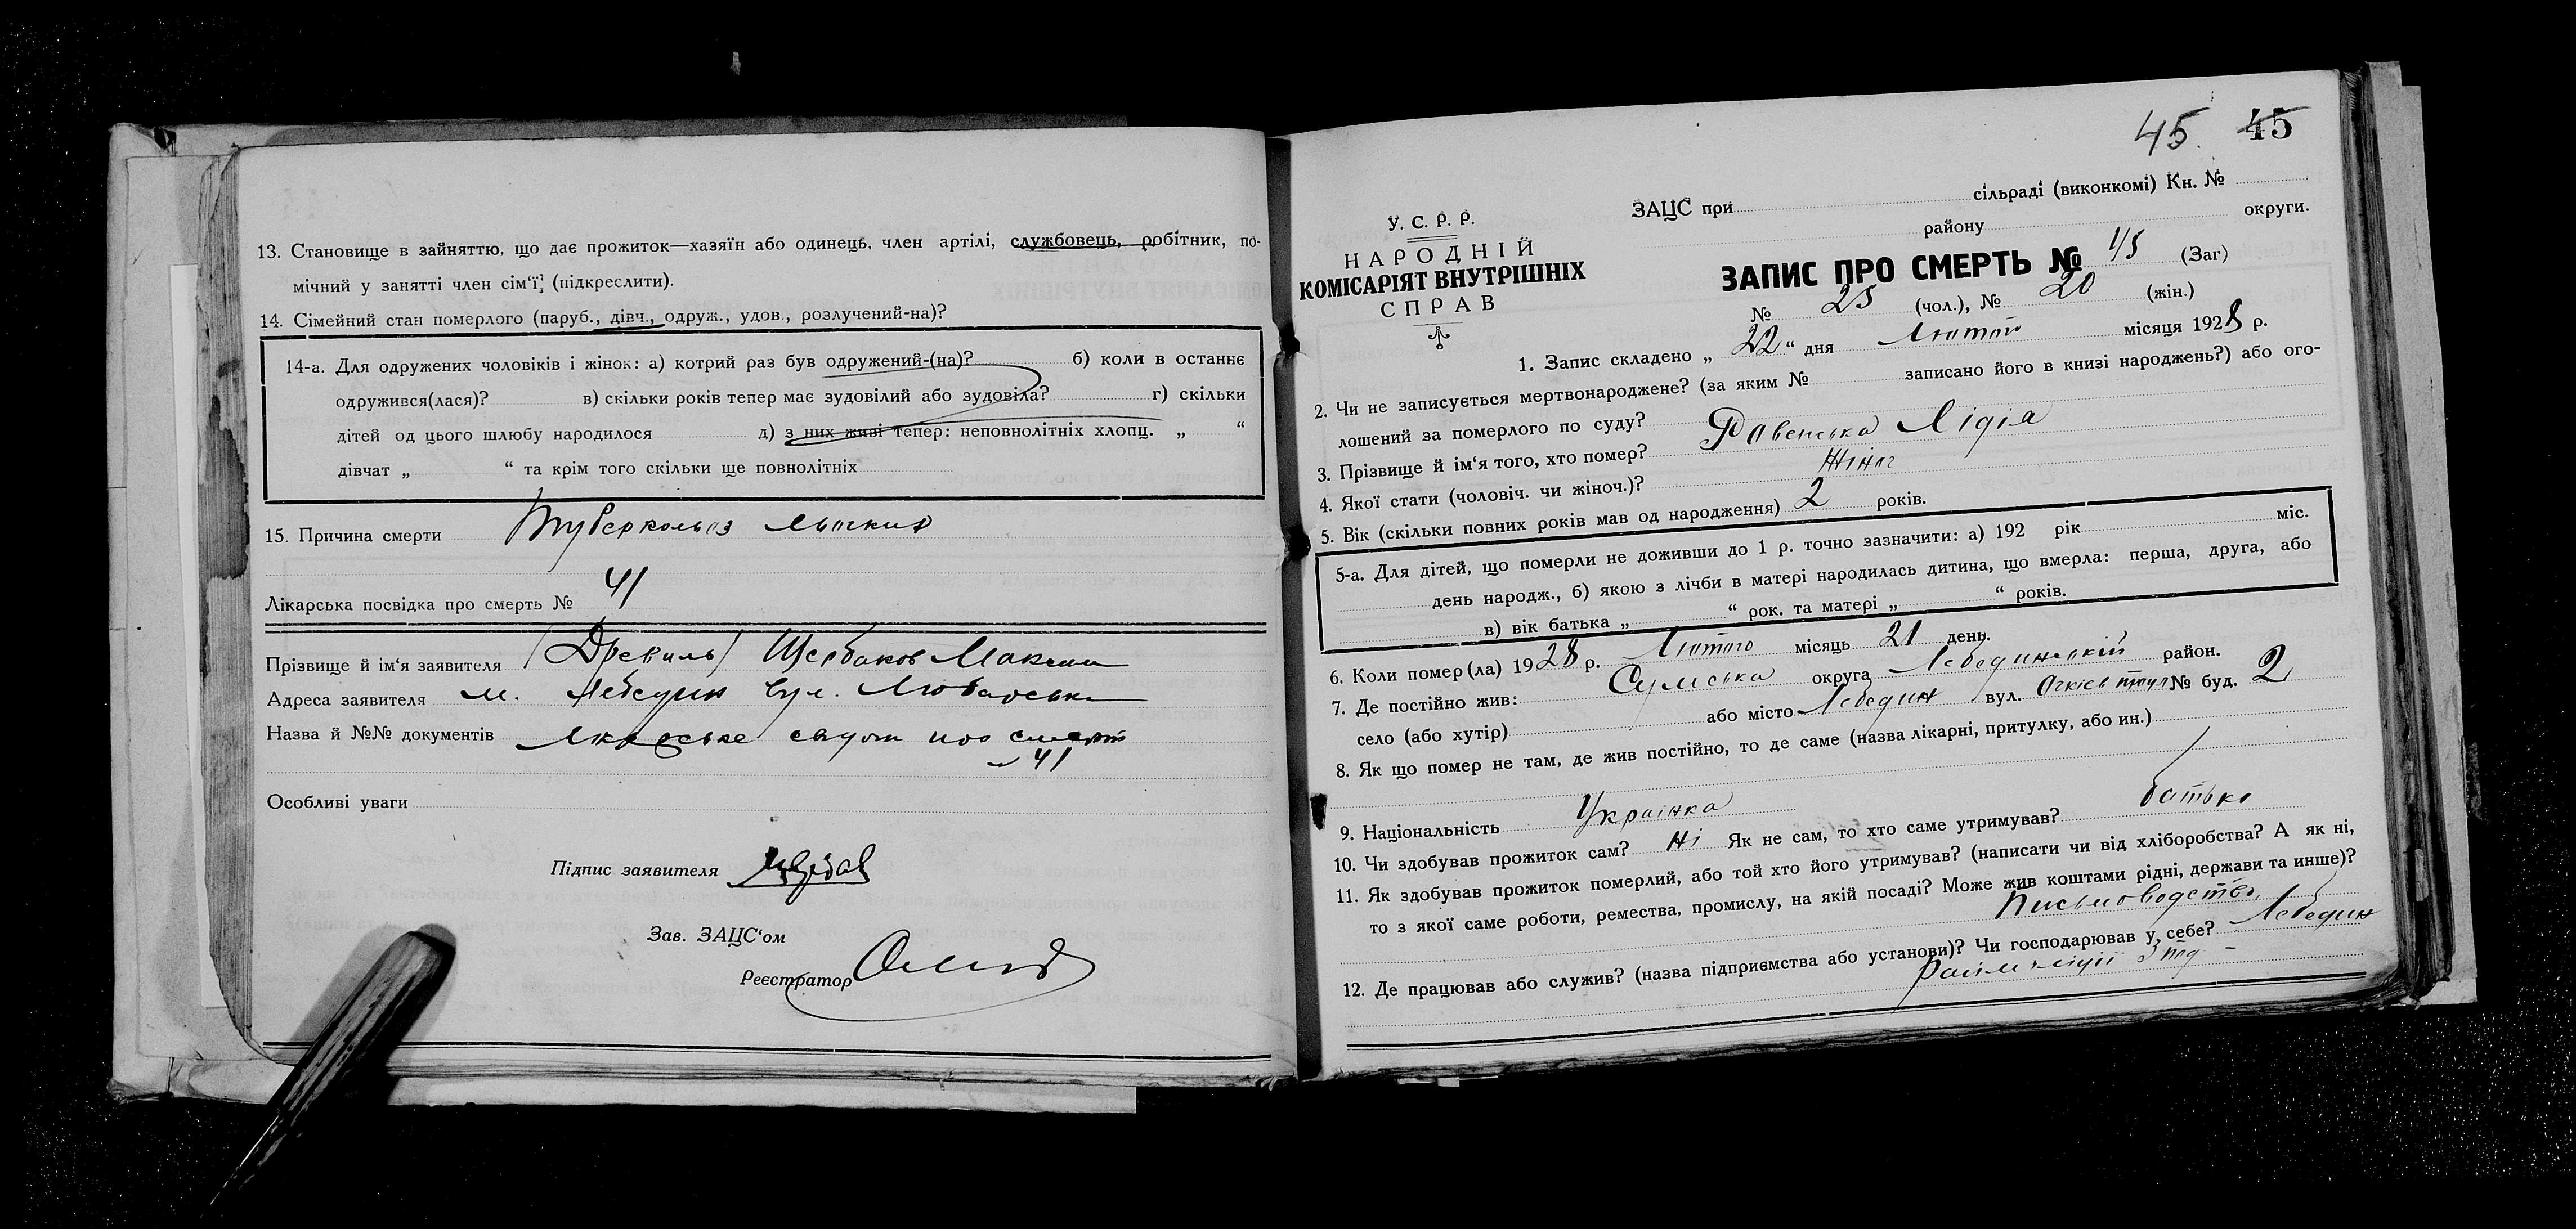 13. Становище в зайняттю, що дає прожиток—хазяїн або одинець, член артілі, службовець, робітник, по-
мічний у занятті член сім'ї; (підкреслити).
14. Сімейний стан померлого (паруб., дівч., одруж., удов., розлучений-на)?
14-а. Для одружених чоловіків і жінок: а) котрий раз був одружений-(на)? б) коли в останнє
одружився(лася)? в) скільки років тепер має зудовілий або зудовіла? г) скільки
дітей од цього шлюбу народилося д) з них живі тепер: неповнолітніх хлопц. „ “
дівчат „ “ та крім того скільки ще повнолітніх
15. Причина смерти Туберкольоз
Лікарська посвідка про смерть № 41
Прізвище й ім'я заявителя Щербаков Максим
Адреса заявителя м. Лебедин вул.
Назва й №№ документів про смерть
41
Особливі уваги
Підпис заявителя
Зав. ЗАЦС'ом
Реєстратор
45. 45
У. С. Р. Р.
НАРОДНІЙ
КОМІСАРІЯТ ВНУТРІШНІХ
СПРАВ
ЗАЦС при сільраді (виконкомі) Кн. №
району округи.
ЗАПИС ПРО СМЕРТЬ № 45 (Заг)
№ 25 (чол.), № 20 (жін.)
1. Запис складено „ 22 “ дня Лютого місяця 1928 р.
2. Чи не записується мертвонароджене? (за яким № записано його в книзі народжень?) або ого-
лошений за померлого по суду?
3. Прізвище й ім'я того, хто помер? Равенська Лідія
4. Якої стати (чоловіч. чи жіноч.)? Жіноч
5. Вік (скільки повних років мав од народження) 2 років.
5-а. Для дітей, що померли не доживши до 1 р. точно зазначити: а) 192 рік міс.
день народж., б) якою з лічби в матері народилась дитина, що вмерла: перша, друга, або
в) вік батька „ “ рок. та матері „ “ років.
6. Коли помер(ла) 1928 р. Лютого місяць 21 день.
7. Де постійно жив: Сумська округа Лебединський район.
село (або хутір) або місто Лебедин вул. № буд. 2
8. Як що помер не там, де жив постійно, то де саме (назва лікарні, притулку, або ин.)
9. Національність Українка
10. Чи здобував прожиток сам? Ні Як не сам, то хто саме утримував? батько
11. Як здобував прожиток померлий, або той хто його утримував? (написати чи від хліборобства? А як ні,
то з якої саме роботи, ремества, промислу, на якій посаді? Може жив коштами рідні, держави та инше)?
Письмоводство
12. Де працював або служив? (назва підприємства або установи)? Чи господарював у себе? Лебедин